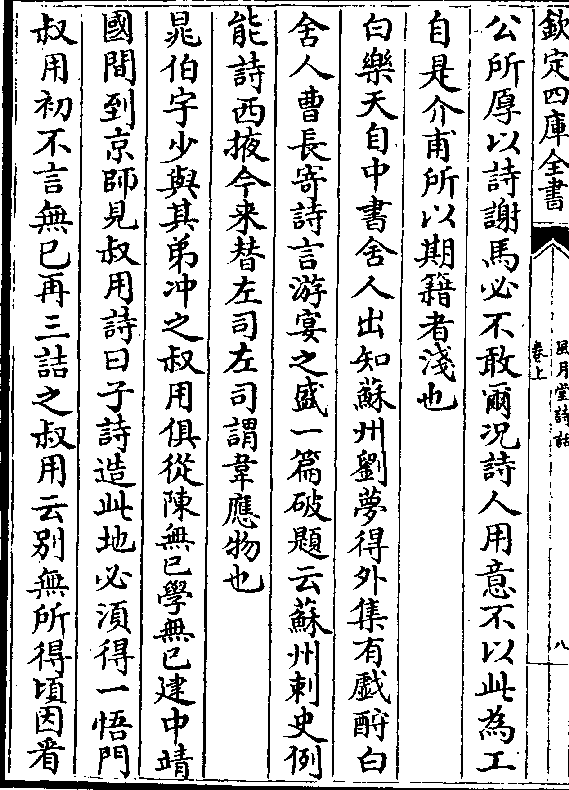 欽定四庫全書
風月堂詩話
卷上
八
公所厚以詩謝馬必不敢爾况詩人用意不以此為工
自是介甫所以期籍者淺也
白樂天自中書舍人出知蘇州劉夢得外集有戲酧白
舍人曹長寄詩言游宴之盛一篇破題云蘇州刺史例
能詩西掖今来替左司左司謂韋應物也
晁伯宇少與其弟冲之叔用俱從陳無已學無已建中靖
國間到京師見叔用詩曰子詩造此地必須得一悟門
叔用初不言無已再三詰之叔用云别無所得頃因看